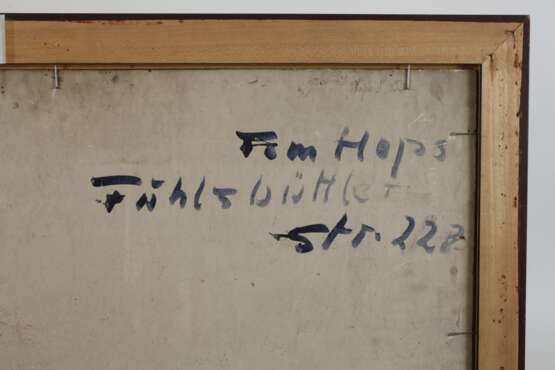 Tom Hops
Fühlsbüttler
Str. 228